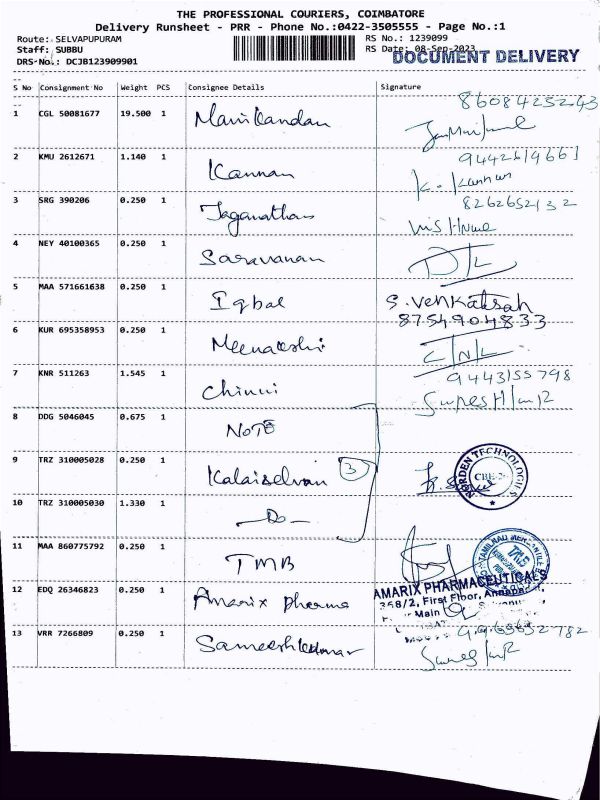 THE PROFESSIONAL COURIERS, COIMBATORE
Delivery Runsheet - PRR - Phone No.:0422-3505555 - Page No.:1
Route: SELVAPUPURAM RS No.: 1239099
Staff: SUBBU RS Date: 08-Sep-2023
DRS-No.: DCJB123909901 DOCUMENT DELIVERY
S No Consignment No Weight PCS Consignee Details Signature
8608425243
1 CGL 50081677 19.500 1 Manikandan
2 KMU 2612671 1.140 1 Kannan 9442619661
K. Kannan
3 SRG 390206 0.250 1 Jaganathan 8262652132
4 NEY 40100365 0.250 1 Saravanan D/L
5 MAA 571661638 0.250 1 Iqbal S. Venkatesah
8754904833
6 KUR 695358953 0.250 1 Meenakshi C/N/L
7 KNR 511263 1.545 1 Chinni 9443155798
8 DDG 5046045 0.675 1 NOTE
9 TRZ 310005028 0.250 1 Kalaiselvan 3 NORDEN TECHNOLOGIES
10 TRZ 310005030 1.330 1 -Do-
11 MAA 860775792 0.250 1 TMB TAMILNAD MERCANTILE
12 EDQ 26346823 0.250 1 Amarix pharma AMARIX PHARMACEUTICALS
358/2, First Floor,
Main
13 VRR 7266809 0.250 1 Sameeshkumar